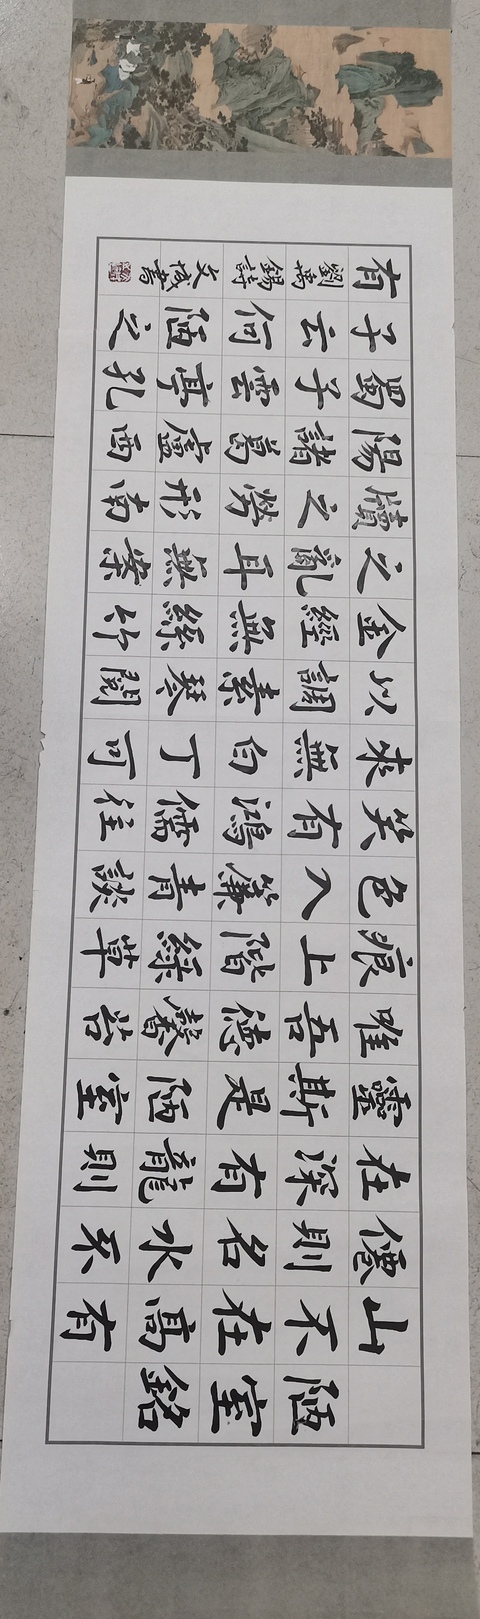 陋室銘
山不在高有
僊則名水不
在深有龍則
靈斯是陋室
唯吾德馨苔
痕上階綠草
色入簾青談
笑有鴻儒往
來無白丁可
以調素琴閱
金經無絲竹
之亂耳無案
牘之勞形南
陽諸葛盧西
蜀子雲亭孔
子云何陋之
有劉禹錫詩文成書